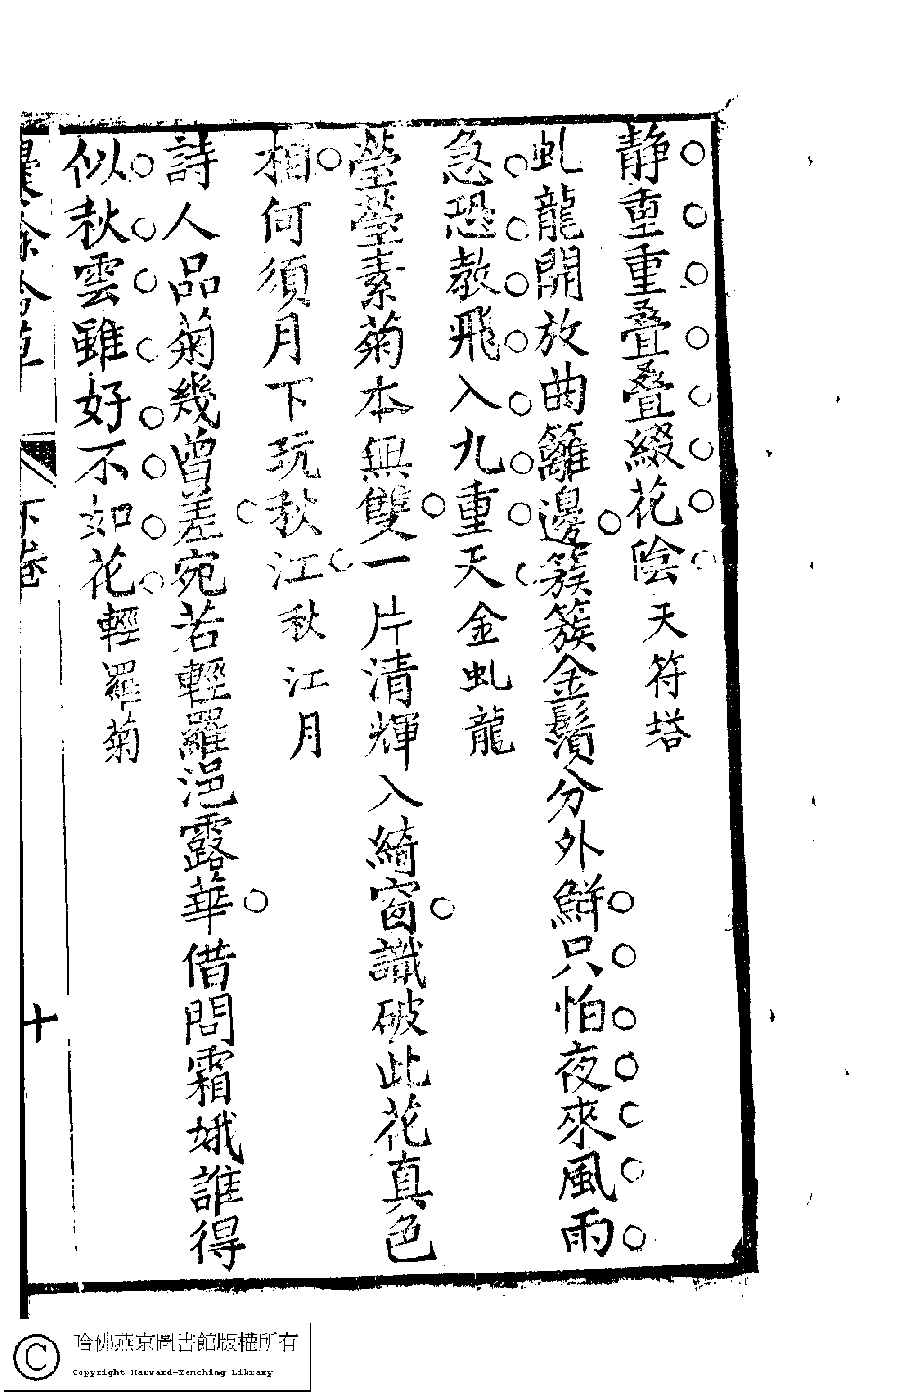 静重重叠叠綴花陰天符塔
虬龍開放曲籬邊簇簇金鬚分外鮮只怕夜來風雨
急恐教飛入九重天金虬龍
瑩瑩素菊本無雙一片清輝入綺窗識破此花真色
相何須月下玩秋江秋江月
詩人品菊幾曾差宛若輕羅浥露華借問霜娥誰得
似秋雲雖好不如花輕羅菊
下卷
十
哈佛燕京圖書館版權所有
Copyright Harvard-Yenching Library